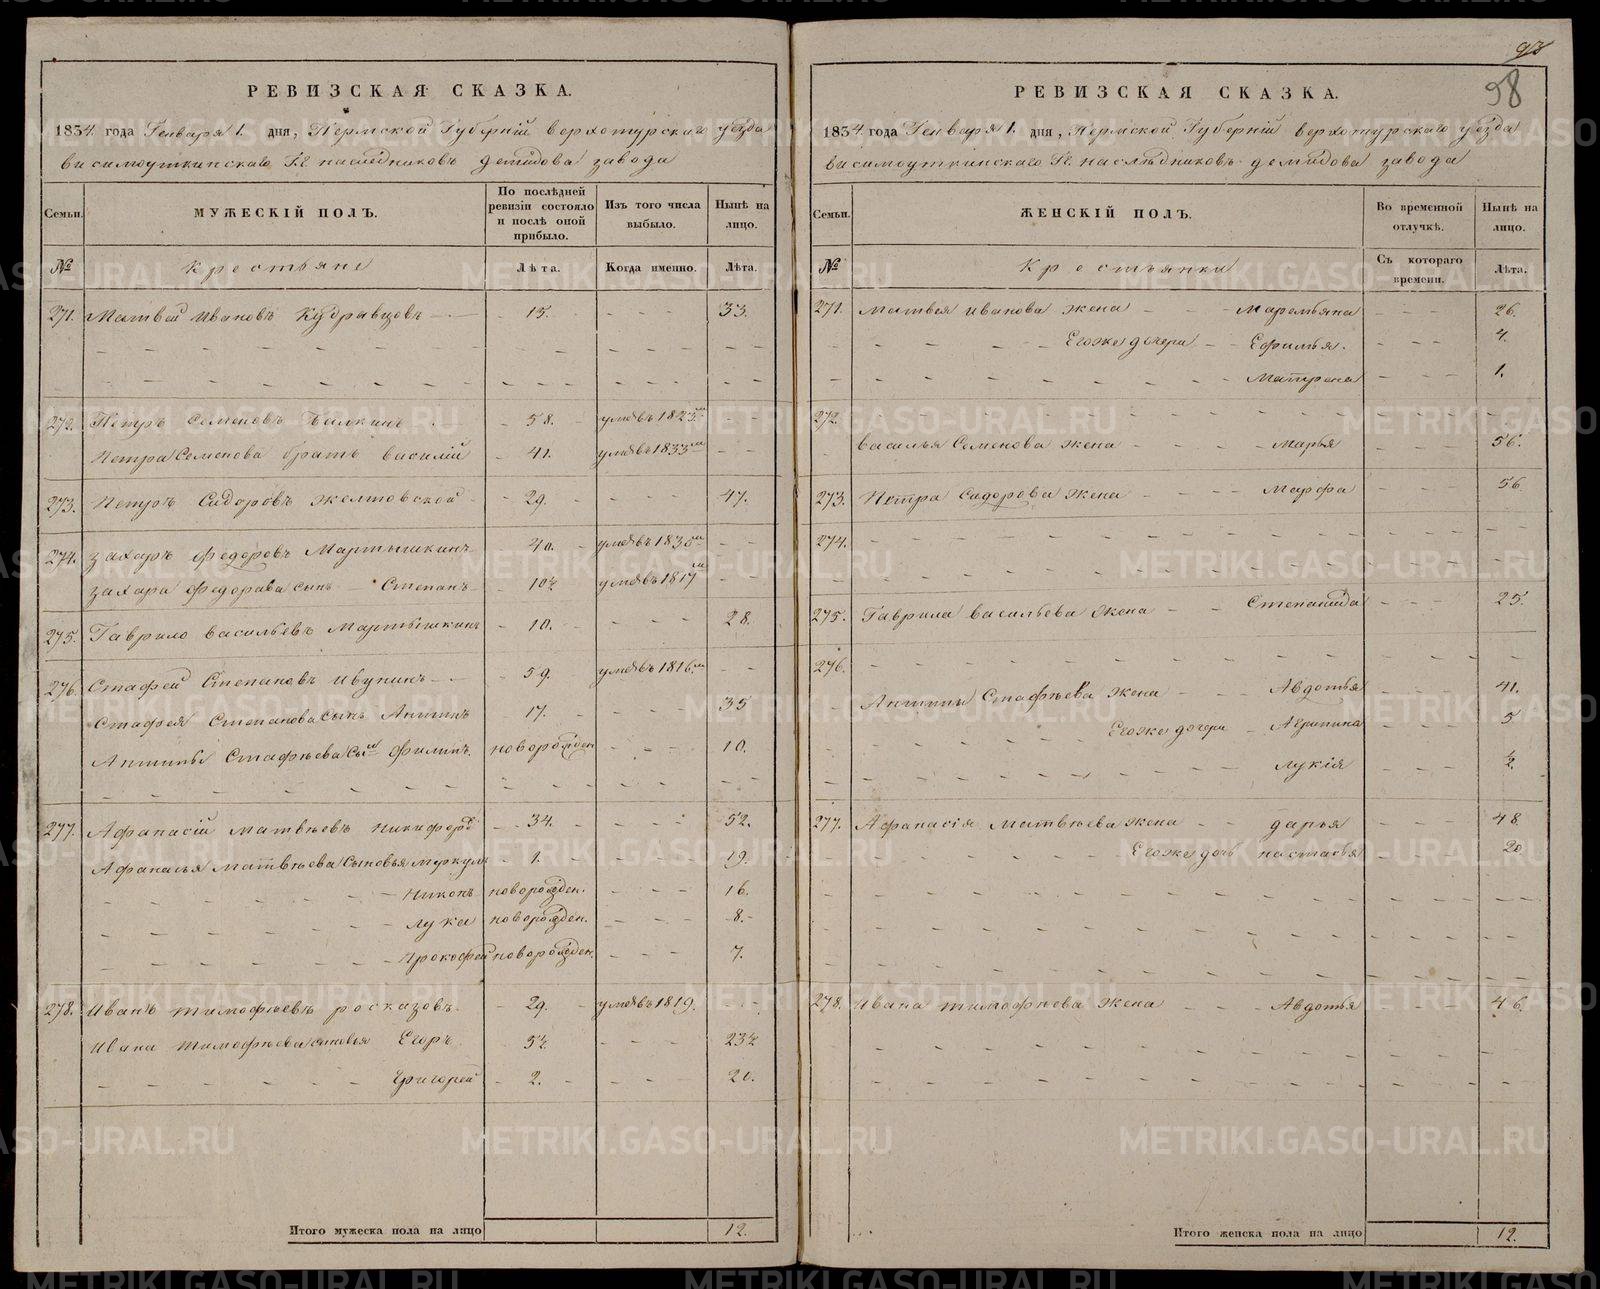 93
98
РЕВИЗСКАЯ СКАЗКА.
1834. года Генваря 1. дня, Пермской Губерніи верхотурскаго уѣзда
висимоуткинскаго Гг. наслѣдниковъ демидова завода
Семьи. МУЖЕСКІЙ ПОЛЪ. По послѣдней ревизіи состояло и послѣ оной прибыло. Изъ того числа выбыло. Нынѣ на лицо.
№ Крестьяне Лѣта. Когда именно. Лѣта.
271. Матвей Ивановъ Кудравцовъ 15. 33.
272. Петръ Семеновъ Билкинъ 58. умеръ въ 1825м
Петра Семенова братъ василій 41. умеръ въ 1833м
273. Петръ Сидоровъ желтовской 29. 47.
274. Захаръ Федоровъ Мартышкинъ 40. умеръ въ 1830м
Захара Федорова сынъ Степанъ 10½ умеръ въ 1817м
275. Гаврило васильевъ Мартышкинъ 10. 28.
276. Стафей Степановъ Ивунинъ 59. умеръ въ 1816м
Стафея Степанова сынъ Антипъ 17. 35
Антипы Стафѣева сынъ Филипъ новорожден 10.
277. Афанасій Матвѣевъ Никифоровъ 34. 52.
Афанасья Матвѣева сыновья Меркулъ 1. 19.
Никонъ новорожден. 16.
Лука новорожден. 8.
Прокофей новорожден. 7.
278. Иванъ тимофѣевъ росказовъ 29. умеръ въ 1819.
Ивана тимофѣева сыновья Егоръ 5½ 23½
Григорей 2. 20.
Итого мужеска пола на лицо 12.
РЕВИЗСКАЯ СКАЗКА.
1834. года Генваря 1. дня, Пермской Губерніи верхотурскаго уѣзда
висимоуткинскаго Гг. наслѣдниковъ демидова завода
Семьи. ЖЕНСКІЙ ПОЛЪ. Во временной отлучкѣ. Нынѣ на лицо.
№ Крестьянки Съ котораго времени. Лѣта.
271. Матвея Иванова жена Маремьяна 26.
Егоже дочери Ефимья. 4.
Матрена 1.
272.
василья Семенова жена Марья 56.
273. Петра Сидорова жена Марфа 56
274.
275. Гаврила васильева жена Степанида 25.
276.
Антипы Стафѣева жена Авдотья 41.
Егоже дочери Агрипина 5
Лукія ½.
277. Афанасія Матвѣева жена дарья 48
Егоже дочь настасья 20
278. Ивана тимофѣева жена Авдотья 46.
Итого женска пола на лицо 12.
METRIKI.GASO-URAL.RU